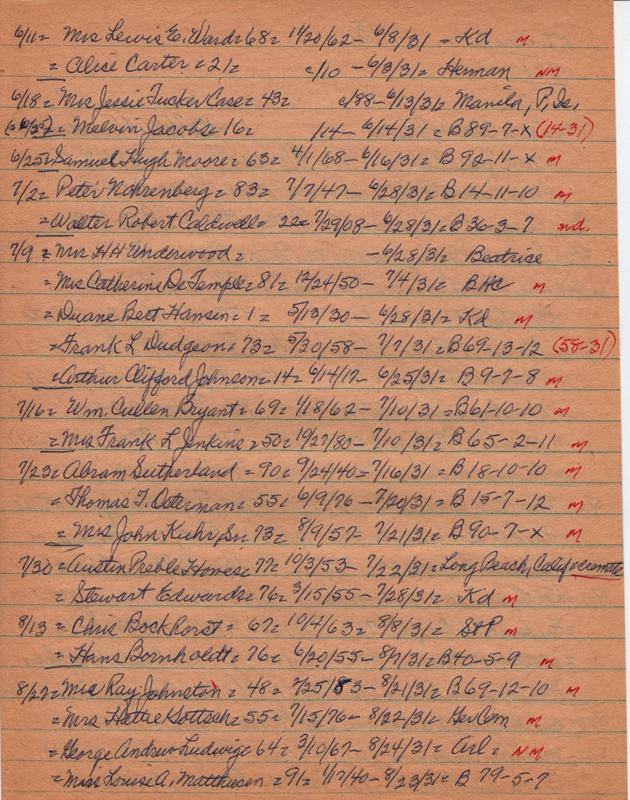 6/11 = Mrs Lewis E. Ward = 68 = 11/20/62 - 6/8/31 = Kd M
= Alice Carter = 21 = c/10 - 6/3/31 = Herman NM
6/18 = Mrs Jessie Tucker Case = 43 = c/88 - 6/13/31 = Manila, P. Is.
6/25 = Melvin Jacobs = 16 = /14 - 6/14/31 = B 89-7-X (14-31)
6/25 = Samuel Hugh Moore = 63 = 4/1/68 - 6/16/31 = B 92-11-X M
7/2 = Peter Nohrenberg = 83 = 7/7/47 - 6/28/31 = B 14-11-10 M
= Walter Robert Caldwell = 22 = 7/29/08 - 6/28/31 = B 36-3-7 nd.
7/9 = Mrs HH Underwood = - 6/28/31 = Beatrice
= Mrs Catherine DeTemple = 81 = 12/24/50 - 7/4/31 = BHC M
= Duane Bert Hansen = 1 = 5/13/30 - 6/28/31 = Kd M
= Frank L Dudgeon = 73 = 5/20/58 - 7/7/31 = B 69-13-12 (58-31)
= Arthur Clifford Johnson = 14 = 6/14/17 - 6/25/31 = B 9-7-8 M
7/16 = Wm. Cullen Bryant = 69 = 1/18/62 - 7/10/31 = B 61-10-10 M
= Mrs Frank L Jenkins = 50 = 10/27/80 - 7/10/31 = B 65-2-11 M
7/23 = Abram Sutherland = 90 = 9/24/40 = 7/16/31 = B 18-10-10 M
= Thomas T. Osterman = 55 = 6/9/76 - 7/20/31 = B 15-7-12 M
= Mrs John Kuhr, Sr = 73 = 8/9/57 - 7/21/31 = B 90-7-X M
7/30 = Austin Preble Homes = 77 = 10/3/53 - 7/22/31 = Long Beach, Calif = cremate
= Stewart Edwards = 76 = 3/15/55 - 7/28/31 = Kd M
8/13 = Chris Bockhorst = 67 = 10/4/63 = 8/8/31 = St P M
= Hans Bornholdt = 76 = 6/20/55 - 8/7/31 = B 40-5-9 M
8/27 = Mrs Ray Johnston = 48 = 2/25/83 - 8/21/31 = B 69-12-10 M
= Mrs Hattie Gottsch = 55 = 7/15/76 - 8/22/31 = Ger Cem M
= George Andrew Ludwig = 64 = 3/10/67 - 8/24/31 = Arl = NM
= Miss Louise A. Matthiesen = 91 = 1/17/40 - 8/23/31 = B 79-5-7